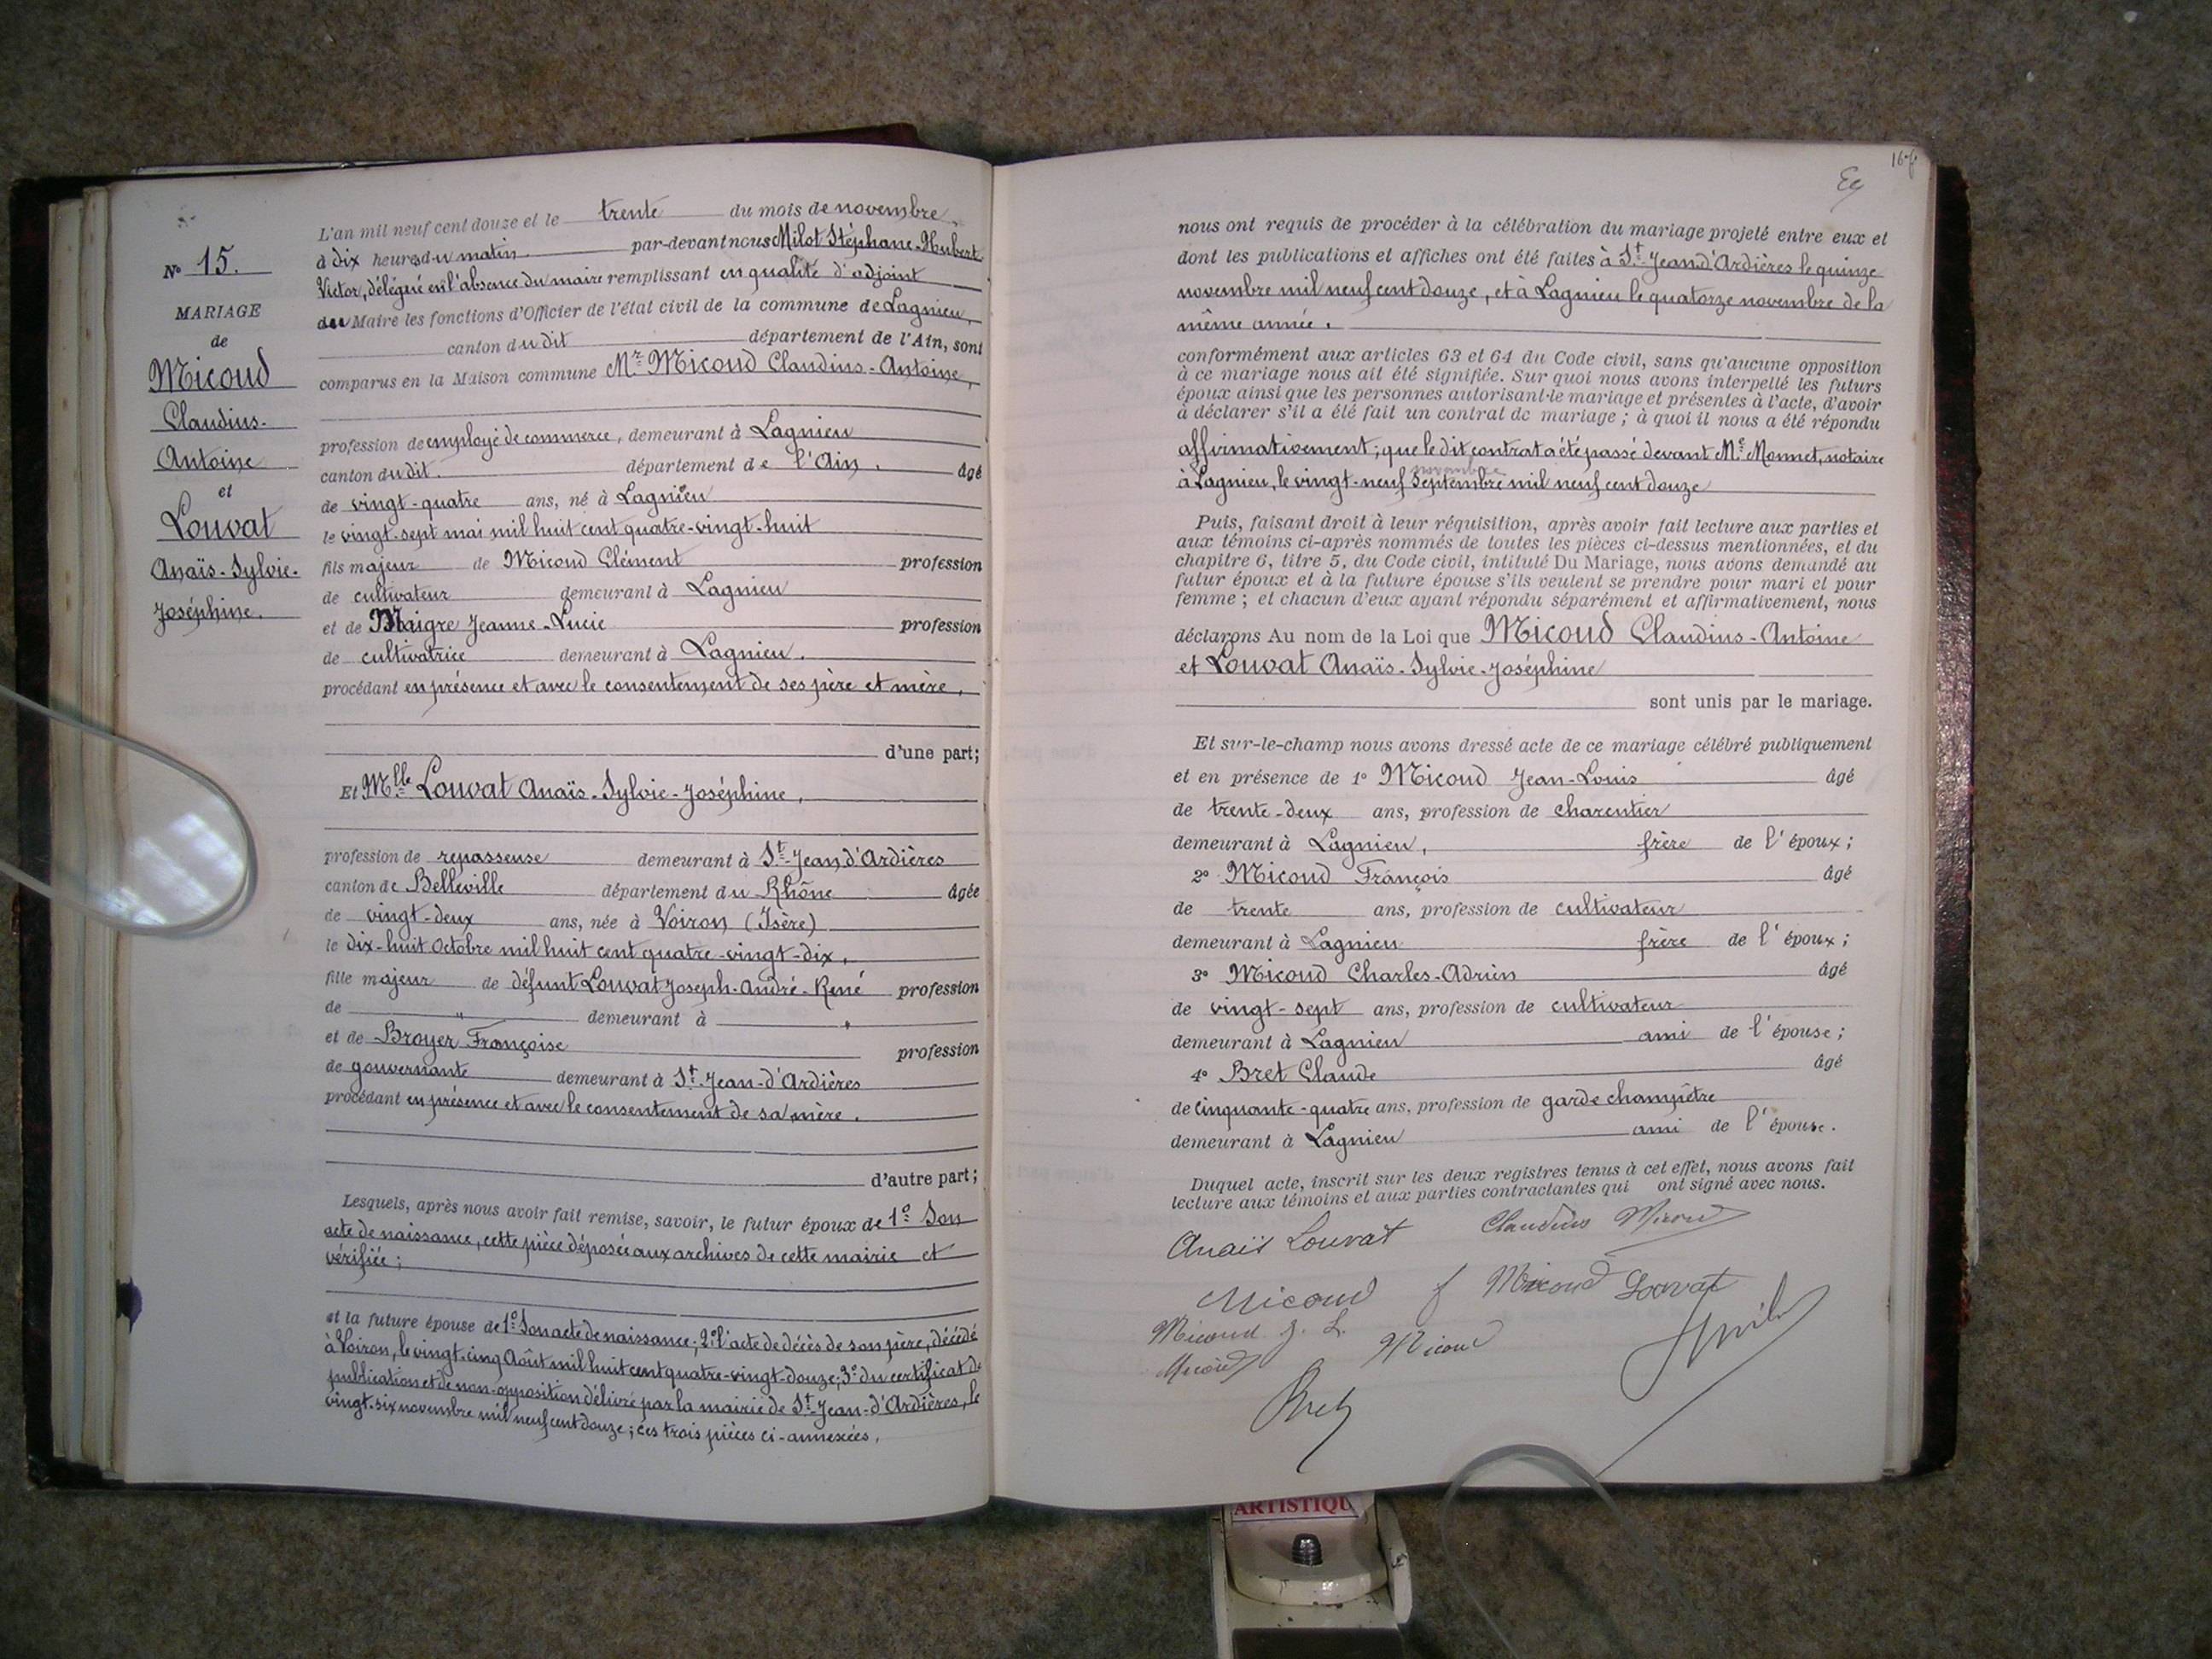 N° 15.
MARIAGE
de
Micoud
Claudius-
Antoine
et
Louvat
Anaïs-Sylvie-
Joséphine.
L'an mil neuf cent douze et le trente du mois de novembre
à dix heures du matin. par-devant nous Milot Stéphane-Hubert
Victor, délégué en l'absence du maire remplissant en qualité d'adjoint
du Maire les fonctions d'Officier de l'état civil de la commune de Lagnieu,
canton du dit département de l'Ain, sont
comparus en la Maison commune Mr. Micoud Claudius-Antoine,
profession de employé de commerce, demeurant à Lagnieu
canton du dit. département de l'Ain. âgé
de vingt-quatre ans, né à Lagnieu
le vingt-sept mai mil huit cent quatre-vingt-huit
fils majeur de Micoud Clément profession
de cultivateur demeurant à Lagnieu
et de Maigre Jeanne-Lucie profession
de cultivatrice demeurant à Lagnieu.
procédant en présence et avec le consentement de ses père et mère,
d'une part;
Et Mlle Louvat Anaïs-Sylvie-Joséphine,
profession de repasseuse demeurant à St-Jean d'Ardières
canton de Belleville département du Rhône âgée
de vingt-deux ans, née à Voiron (Isère)
le dix-huit Octobre mil huit cent quatre-vingt-dix,
fille majeur de défunt Louvat Joseph-André-René profession
de " demeurant à "
et de Broyer Françoise profession
de gouvernante demeurant à St-Jean-d'Ardières
procédant en présence et avec le consentement de sa mère.
d'autre part;
Lesquels, après nous avoir fait remise, savoir, le futur époux de 1° Son
acte de naissance, cette pièce déposée aux archives de cette mairie et
vérifiée;
et la future épouse de 1° Son acte de naissance; 2° l'acte de décès de son père, décédé
à Voiron, le vingt-cinq Août mil huit cent quatre-vingt-douze; 3° du certificat de
publication et de non-opposition délivré par la mairie de St-Jean-d'Ardières, le
vingt-six novembre mil neuf cent douze; ces trois pièces ci-annexées.
nous ont requis de procéder à la célébration du mariage projeté entre eux et
dont les publications et affiches ont été faites à St-Jean d'Ardières le quinze
novembre mil neuf cent douze, et à Lagnieu le quatorze novembre de la
même année.
conformément aux articles 63 et 64 du Code civil, sans qu'aucune opposition
à ce mariage nous ait été signifiée. Sur quoi nous avons interpellé les futurs
époux ainsi que les personnes autorisant le mariage et présentes à l'acte, d'avoir
à déclarer s'il a été fait un contrat de mariage; à quoi il nous a été répondu
affirmativement; que le dit contrat a été passé devant Me Monnet, notaire
novembre
à Lagnieu, le vingt-neuf Septembre mil neuf cent douze
Puis, faisant droit à leur réquisition, après avoir fait lecture aux parties et
aux témoins ci-après nommés de toutes les pièces ci-dessus mentionnées, et du
chapitre 6, titre 5, du Code civil, intitulé Du Mariage, nous avons demandé au
futur époux et à la future épouse s'ils veulent se prendre pour mari et pour
femme; et chacun d'eux ayant répondu séparément et affirmativement, nous
déclarons Au nom de la Loi que Micoud Claudius-Antoine
et Louvat Anaïs-Sylvie-Joséphine
sont unis par le mariage.
Et sur-le-champ nous avons dressé acte de ce mariage célébré publiquement
et en présence de 1° Micoud Jean-Louis âgé
de trente-deux ans, profession de charentier
demeurant à Lagnieu, frère de l'époux;
2° Micoud François âgé
de trente ans, profession de cultivateur
demeurant à Lagnieu frère de l'époux;
3° Micoud Charles-Adrien âgé
de vingt-sept ans, profession de cultivateur
demeurant à Lagnieu ami de l'épouse;
4° Bret Claude âgé
de cinquante-quatre ans, profession de garde champêtre
demeurant à Lagnieu ami de l'épouse.
Duquel acte, inscrit sur les deux registres tenus à cet effet, nous avons fait
lecture aux témoins et aux parties contractantes qui ont signé avec nous.
Anaïs Louvat Claudius Micoud
Micoud f Micoud Louvat
Micoud J. L. Micoud
Bret
ARTISTIQU